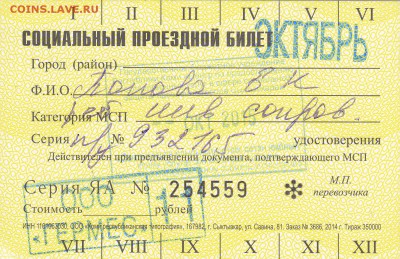 COINS.LAVE.RU
I II III IV V VI
СОЦИАЛЬНЫЙ ПРОЕЗДНОЙ БИЛЕТ
ОКТЯБРЬ
Город (район)
Ф.И.О. Попова В К
Категория МСП реб инв сопров.
Серия № 932765 удостоверения
Действителен при предъявлении документа, подтверждающего МСП
Серия ЯА № 254559 * М.П.
перевозчика
Стоимость
рублей
ООО
"ГЕРМЕС" 11
типография", 167982, г. Сыктывкар, ул. Савина, 81. Заказ № 3686, 2014 г. Тираж 350000
VII VIII IX X XI XII